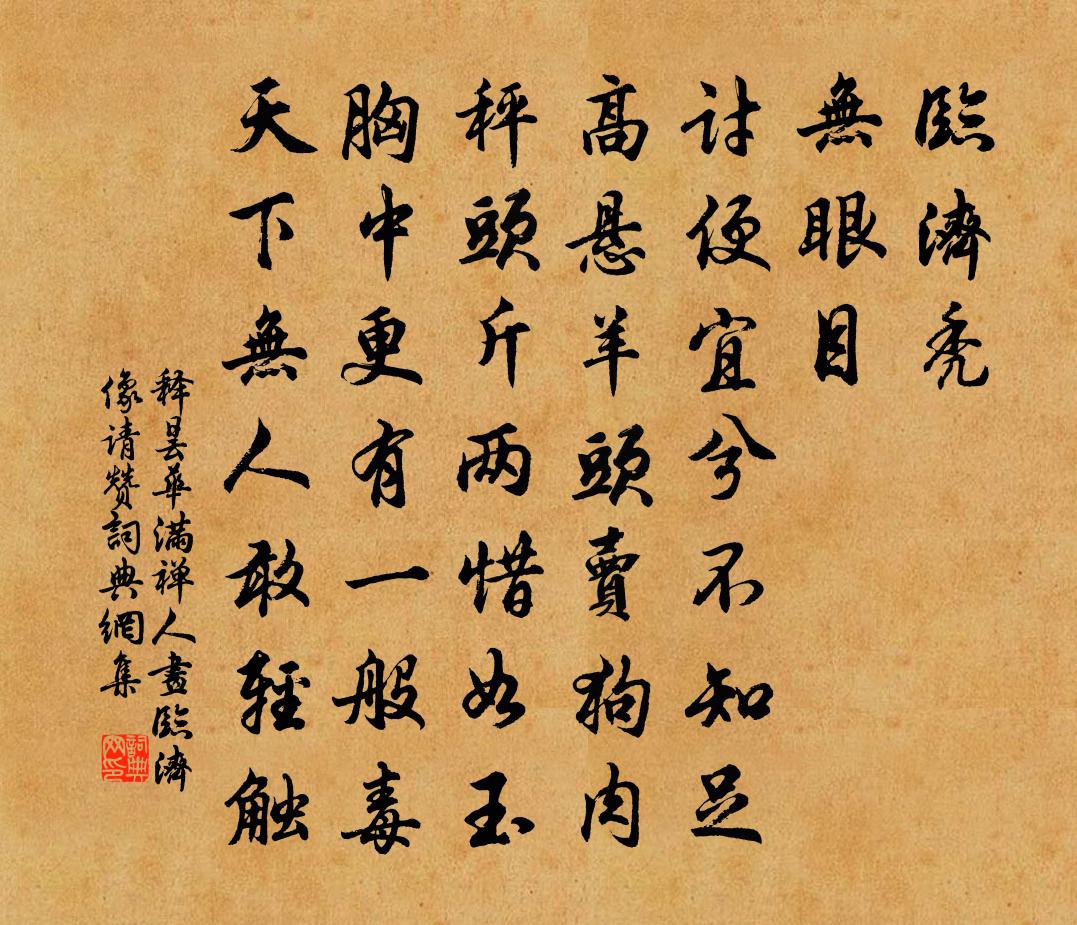 臨濟禿
無眼目
討便宜兮不知足
高悬羊頭賣狗肉
秤頭斤两惜如玉
胸中更有一般毒
天下無人敢輕触
释曇華满禅人畫臨濟
像请赞詞典網集
詞典网印